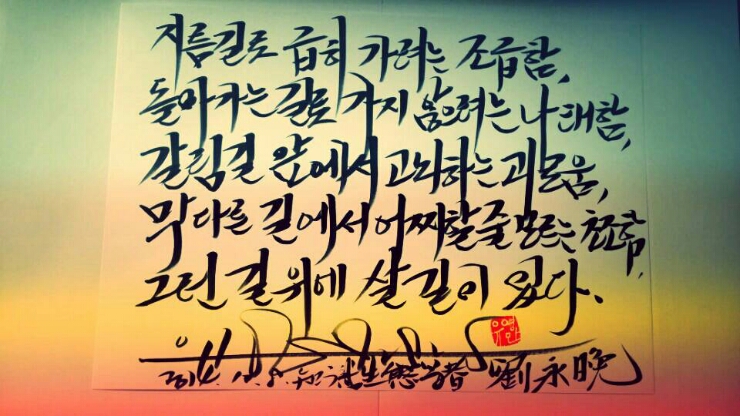 지름길로 급히 가려는 조급함,
돌아가는 길로 가지 않으려는 나태함,
갈림길 앞에서 고뇌하는 괴로움,
막다른 길에서 어찌할줄 모르는 초조함,
그런 길 위에 살 길이 있다.
유영만
2014. 知識生態學者 劉永晩